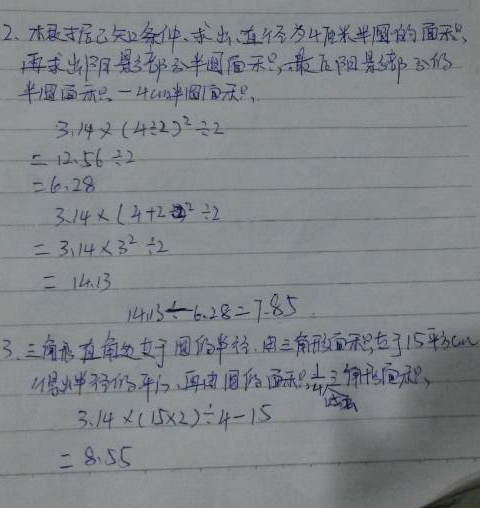 2、根据已知条件、求出直径为4厘米半圆的面积,
再求出阴影部分半圆面积,最后阴影部分的
半圆面积-4cm半圆面积,
3.14×(4÷2)²÷2
=12.56÷2
=6.28
3.14×(4+2)² ÷2
=3.14×3² ÷2
= 14.13
14.13-6.28=7.85
3、三角形直角边等于圆的半径,由三角形面积等于15平方cm
得出半径的平方,再由圆的面积 1/4 三角形面积,
3.14×(15×2)÷4-15
=8.55